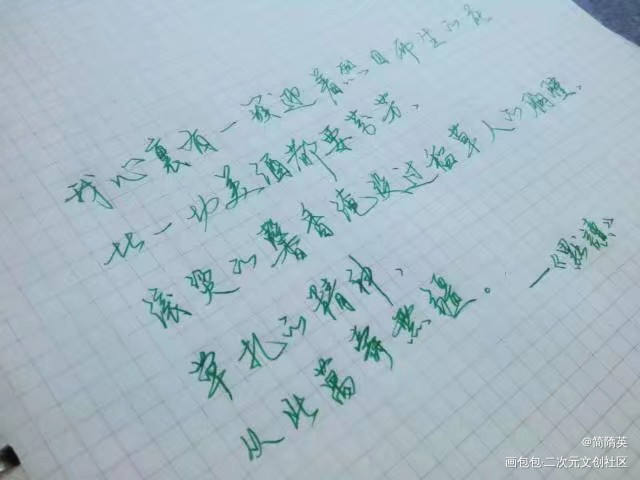 我心裏有一簇迎着烈日而生的花
比一切美酒都要芬芳、
滚燙的馨香淹没过稻草人的胸膛,
草扎的精神、
从此萬壽無疆。 —《默讀》
@简隋英
画包包·二次元文创社区